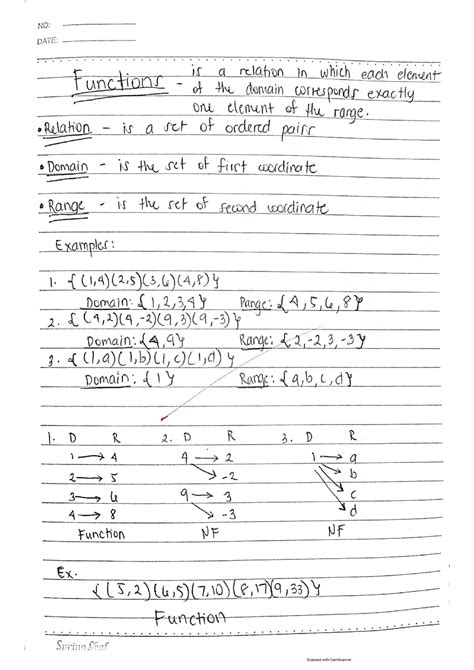 NO:
DATE:
Functions - is a relation in which each element
of the domain corresponds exactly
one element of the range.
• Relation - is a set of ordered pairs
• Domain - is the set of first coordinate
• Range - is the set of second coordinate
Examples:
1. {(1,4)(2,5)(3,6)(4,8)}
Domain: {1,2,3,4} Range: {4,5,6,8}
2. {(4,2)(4,-2)(9,3)(9,-3)}
Domain: {4,9} Range: {2,-2,3,-3}
3. {(1,a)(1,b)(1,c)(1,d)}
Domain: {1} Range: {a,b,c,d}
1. D R 2. D R 3. D R
1 → 4 4 → 2 1 → a
2 → 5 → -2 → b
3 → 6 9 → 3 → c
4 → 8 → -3 → d
Function NF NF
Ex.
{(5,2)(6,5)(7,10)(8,17)(9,33)}
Function
Spring Leaf
Scanned with CamScanner